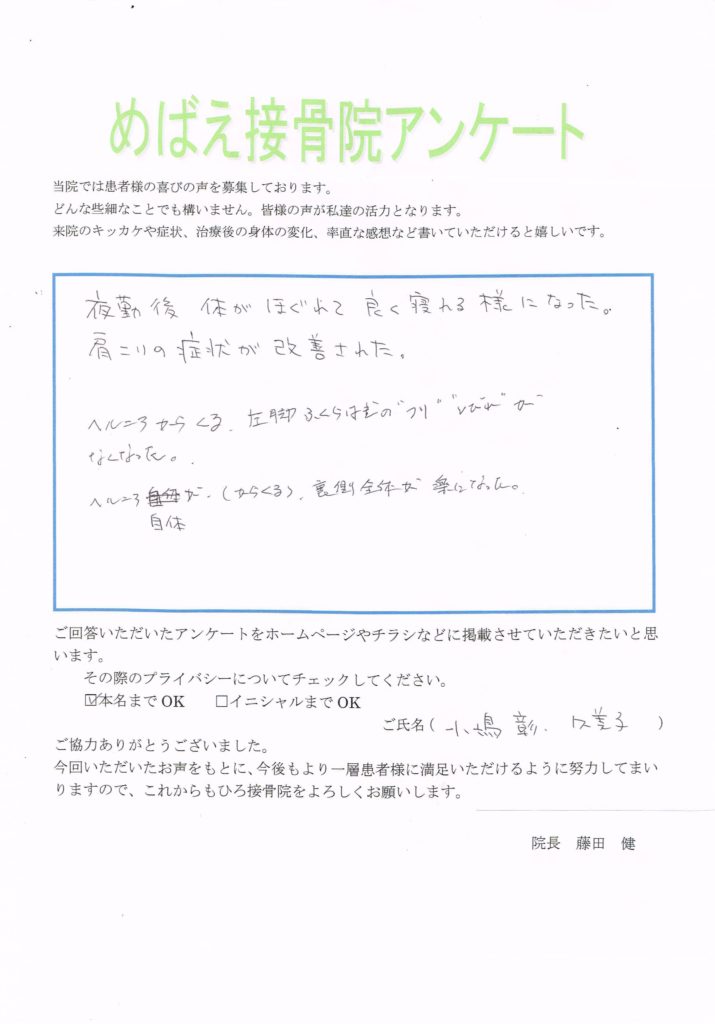 めばえ接骨院アンケート
当院では患者様の喜びの声を募集しております。
どんな些細なことでも構いません。皆様の声が私達の活力となります。
来院のキッカケや症状、治療後の身体の変化、率直な感想など書いていただけると嬉しいです。
夜勤後 体がほぐれて良く寝れる様になった。
肩こりの症状が改善された。
ヘルニアからくる、左脚ふくらはぎの"つり" "しびれ"が
なくなった。
ヘルニア自体が(からくる)、裏側全体が楽になった。
自体
ご回答いただいたアンケートをホームページやチラシなどに掲載させていただきたいと思
います。
その際のプライバシーについてチェックしてください。
☑本名まで OK □イニシャルまで OK
ご氏名( 小嶋 彰、久美子 )
ご協力ありがとうございました。
今回いただいたお声をもとに、今後もより一層患者様に満足いただけるように努力してまい
りますので、これからもひろ接骨院をよろしくお願いします。
院長 藤田 健